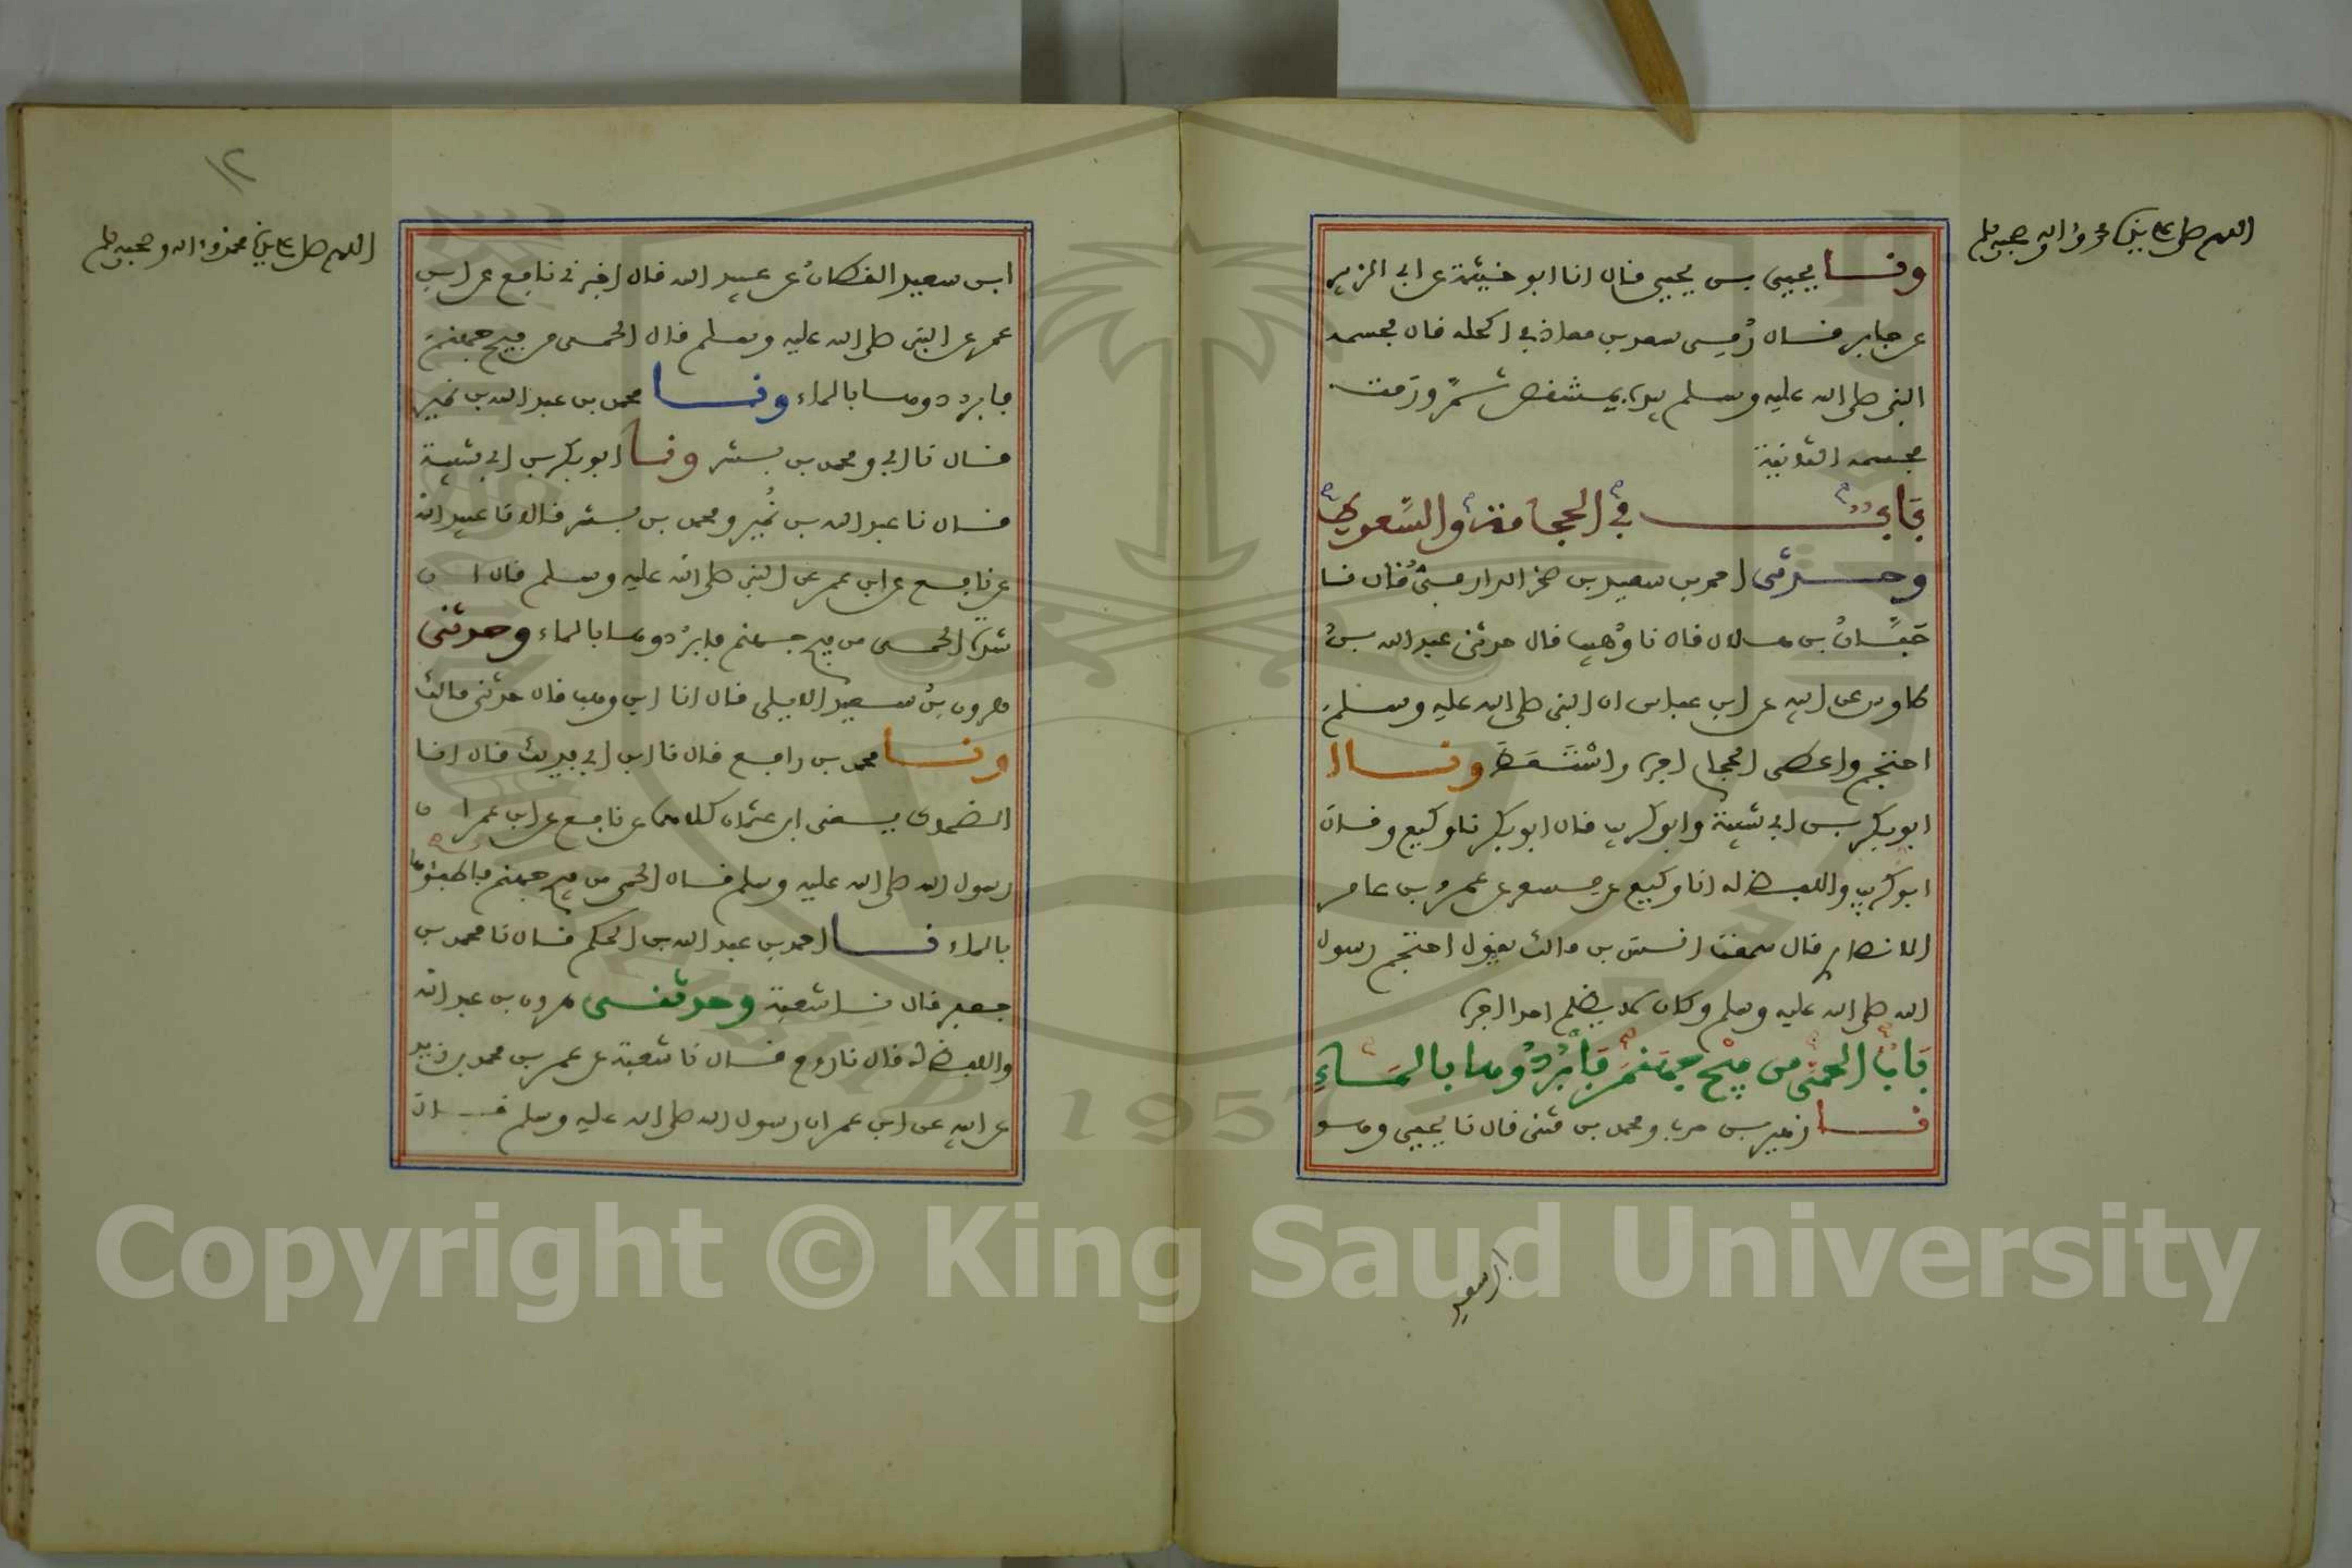 اللهم صل على نبيك محمد وءاله وصحبه وسلم
ونا يحيى بن يحيى قال انا ابو خيثمة عن ابي الزبير
عن جابر قال رُمِي سعد بن معاذ في اكحله قال فحسمه
النبي صلى الله عليه وسلم بيده بمشقص ثمَّ ورمت
فحسمه الثانية
بَابُ في الحجامة والسَّعوط
وحدثني احمد بن سعيد بن صخر الدارمي قال نا
حَبَّانُ بن هلال قال نا وُهيب قال حدثني عبد الله بنُ
طاوس عن ابيه عن ابن عباس ان النبي صلى الله عليه وسلم
احتجم واعطى الحجام اجره واسْتَعَطَ ونا
ابو بكر بن ابي شيبة وابو كريب قال ابو بكر نا وكيع وقال
ابو كريب واللفظ له انا وكيع عن مسعر عن عمرو بن عامر
الانصاري قال سمعت انس بن مالك يقول احتجم رسول
الله صلى الله عليه وسلم وكان لا يظلم احدا اجره
بَابُ الحمى من فيْح جهنم فَابْرُدُوها بالمَاءِ
نا زهير بن حرب ومحمد بن مثنى قال نا يحيى وهو
ابن سعيد
١٢
اللهم صل على نبيك محمد وءاله وصحبه وسلم
ابن سعيد القطانُ عن عبيد الله قال اخبرني نافع عن ابن
عمر عن النبي صلى الله عليه وسلم قال الحمى من فيح جهنم
فابردوها بالماء ونا محمد بن عبد الله بن نمير
قال نا ابي ومحمد بن بشر ونا ابو بكر بن ابي شيبة
قال نا عبد الله بن نُمير ومحمد بن بشر قالا نا عبيد الله
عن نافع عن ابن عمر عن النبي صلى الله عليه وسلم قال ان
شدة الحمى من فيح جهنم فابرُدوها بالماء وحدثني
هرون بنُ سعيد الايلي قال انا ابن وهب قال حدثني مالك
ونا محمد بن رافع قال نا ابن ابي فديك قال انا
الضحاك يعني ابن عثمان كلاهما عن نافع عن ابن عمر ان
رسول الله صلى الله عليه وسلم قال الحمى من فيح جهنم فاطفئوها
بالماء نا احمد بن عبد الله بن الحكم قال نا محمد بن
جعفر قال نا شعبة وحدثني هرون بن عبد الله
واللفظ له قال نا روح قال نا شعبة عن عمر بن محمد بن زيد
عن ابيه عن ابن عمر ان رسول الله صلى الله عليه وسلم قال
Copyright © King Saud University
1957